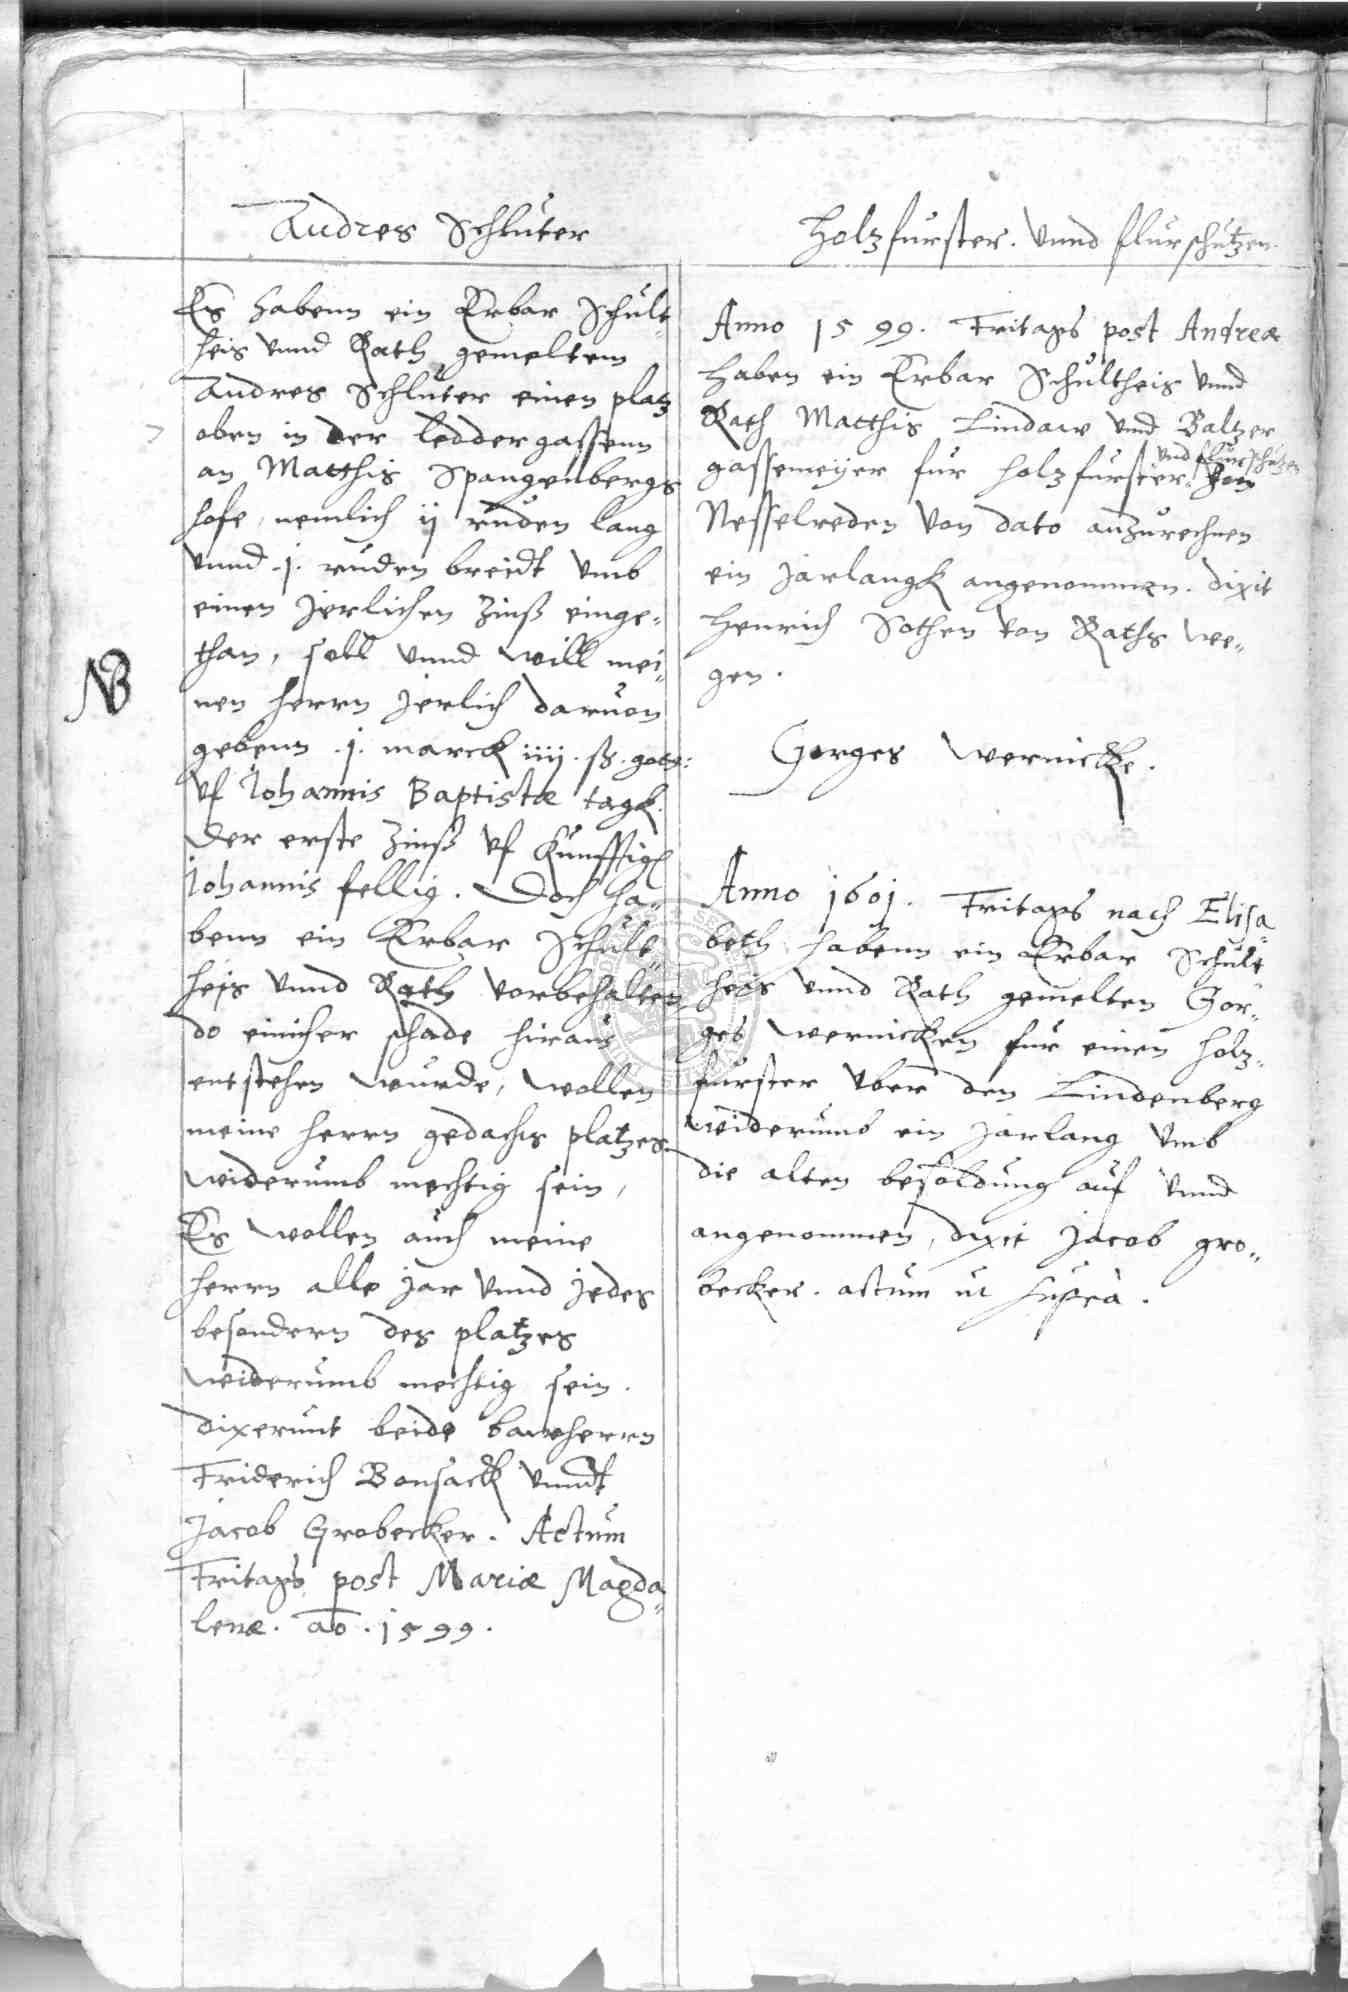 Andres Schluter
Es habenn ein Erbar Schult„
heis vnnd Rath gemeltem
Andres Schluter einen platz
oben in der leddergassenn
an Matthis Spangenbergs
hofe, nemlich ij ruden lang
vnnd .j. ruden breidt vmb
einen jerlichen Zinß einge„
than, soll vnnd will mei„
NB
nen herrn jerlich daruon
gebenn .j. marck iiij. ß. gotz:
vf Johannis Baptistæ tagk.
Der erste Zinß vf kunfftigk
Johannis fellig. Doch ha„
benn ein Erbar Schult„
heis vnnd Rath vorbehalten,
do einicher schade hiraus
entstehen wurde, wollen
meine herrn gedachts platzes
widerumb mechtig sein,
Es wollen auch meine
herrn alle jar vnnd jedes
besondern des platzes
widerumb mechtig sein.
dixerunt beide bawherrn
Friderich Bonsack vnndt
Jacob Grobecker. Actum
Fritags post Mariæ Magda„
lenæ. ao. 1599.
Holzfurster. vnnd flurschutzen.
Anno 1599. Fritags post Andreæ
haben ein Erbar Schultheis vnnd
Rath Matthis Lindaw vnd Baltzer
vnd flurschutzen
gassemeyer fur holzfurster. Zom
Nesselreden von dato anzurechnen
ein jarlangk angenommen. dixit
Henrich Sothen von Raths we„
gen.
Gorges Wernicke.
Anno 1601. Fritags nach Elisa„
beth habenn ein Erbar Schult„
heis vnnd Rath gemelten Gor„
ges Wernicken fur einen holz„
furster vber den Lindenberg
widerumb ein jarlang vmb
die alten besoldung auf vnnd
angenommen, dixit Jacob gro„
becker. actum ut supra.